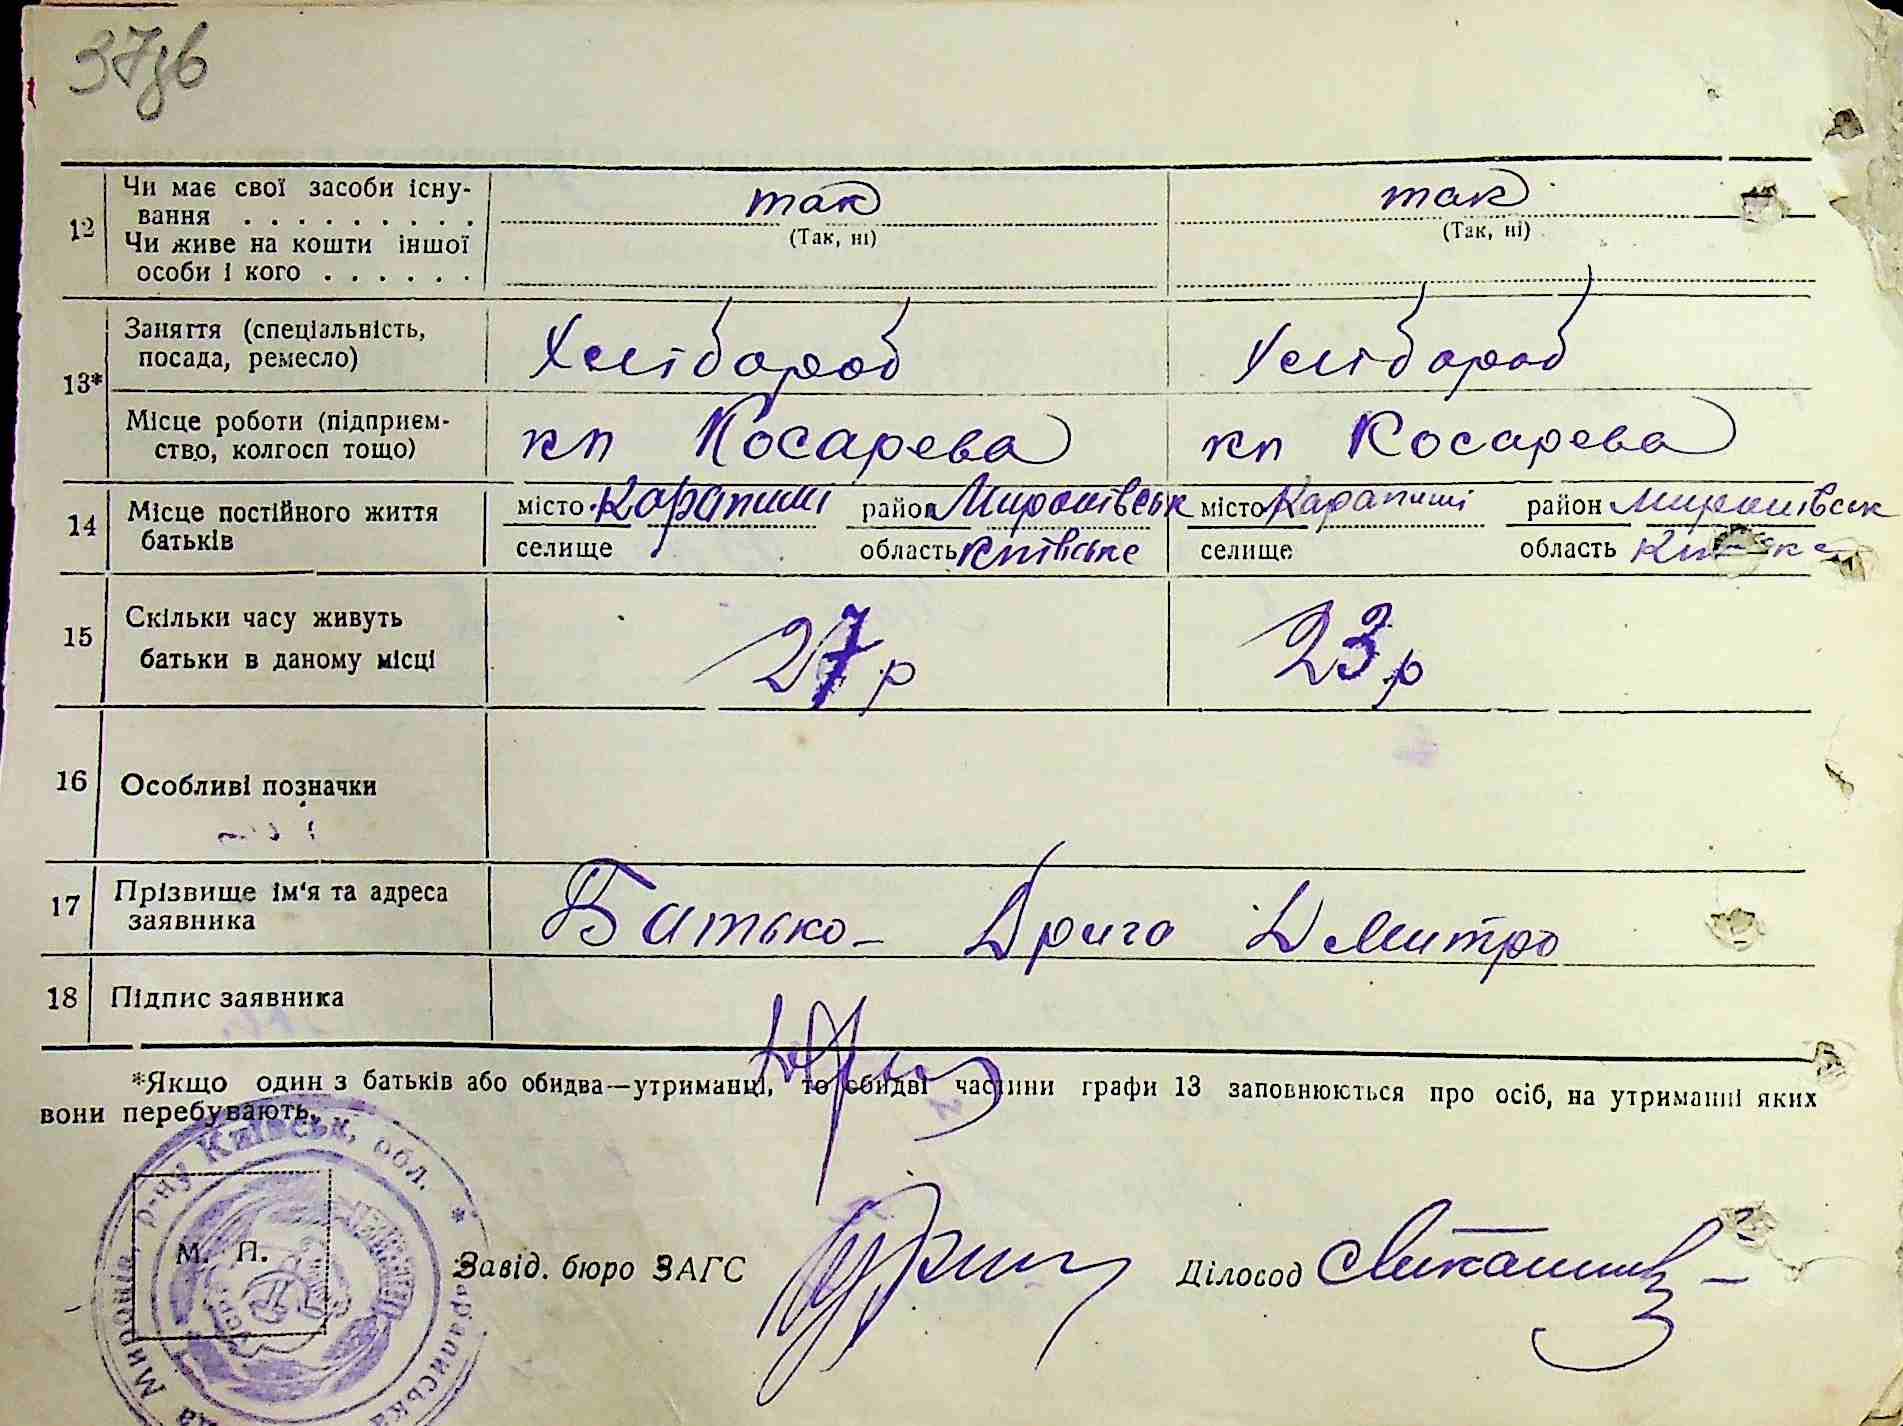 37зв
12 Чи має свої засоби існу-
вання . . . . . . . . . так так
(Так, ні) (Так, ні)
Чи живе на кошти іншої
особи і кого . . . . . .
13* Заняття (спеціальність,
посада, ремесло) Хлібороб Хлібороб
Місце роботи (підприєм-
ство, колгосп тощо) кп Косарева кп Косарева
14 Місце постійного життя
батьків
місто Карапиші район Миронівськ місто Карапиші район Миронівськ
селище область Київське селище область
15 Скільки часу живуть
батьки в даному місці 27 р 23 р
16 Особливі позначки
17 Прізвище ім'я та адреса
заявника Батько – Дрига Дмитро
18 Підпис заявника
*Якщо один з батьків або обидва—утриманці, то обидві частини графи 13 заповнюються про осіб, на утриманні яких
вони перебувають.
р-ну Київськ. обл. *
М. П.
Завід. бюро ЗАГС Діловод